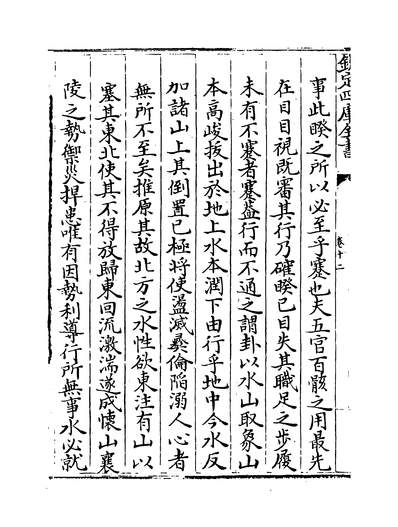 欽定四庫全書
卷十二
事此睽之所以必至乎蹇也夫五官百骸之用最先
在目目視既審其行乃確睽已目失其職足之步履
未有不蹇者蹇蓋行而不通之謂卦以水山取象山
本高峻拔出於地上水本潤下由行乎地中今水反
加諸山上其倒置已極將使盪滅彞倫陷溺人心者
無所不至矣推原其故北方之水性欲東注有山以
塞其東北使其不得放歸東回流激湍遂成懷山襄
陵之勢禦災捍患唯有因勢利導行所無事水必就